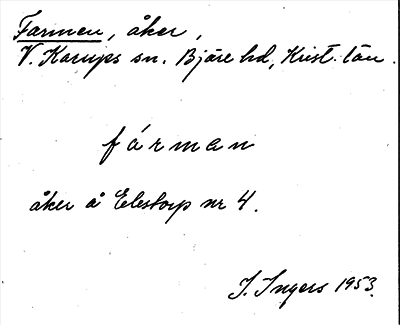 Farmen, åker,
V. Karups sn. Bjäre hd, Krist. län.
fárman
åker å Elestorp nr 4.
I. Ingers 1953.